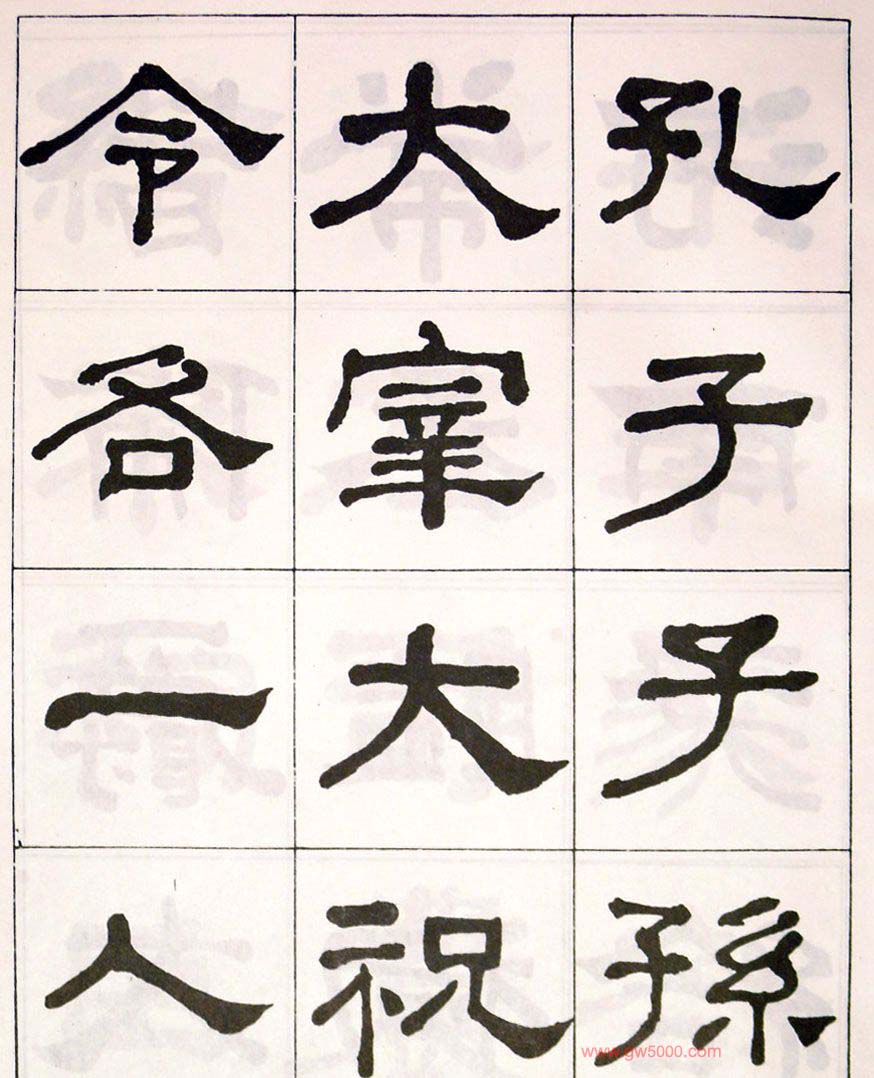 孔子子孫
大宰大祝
令各一人
www.gw5000.com